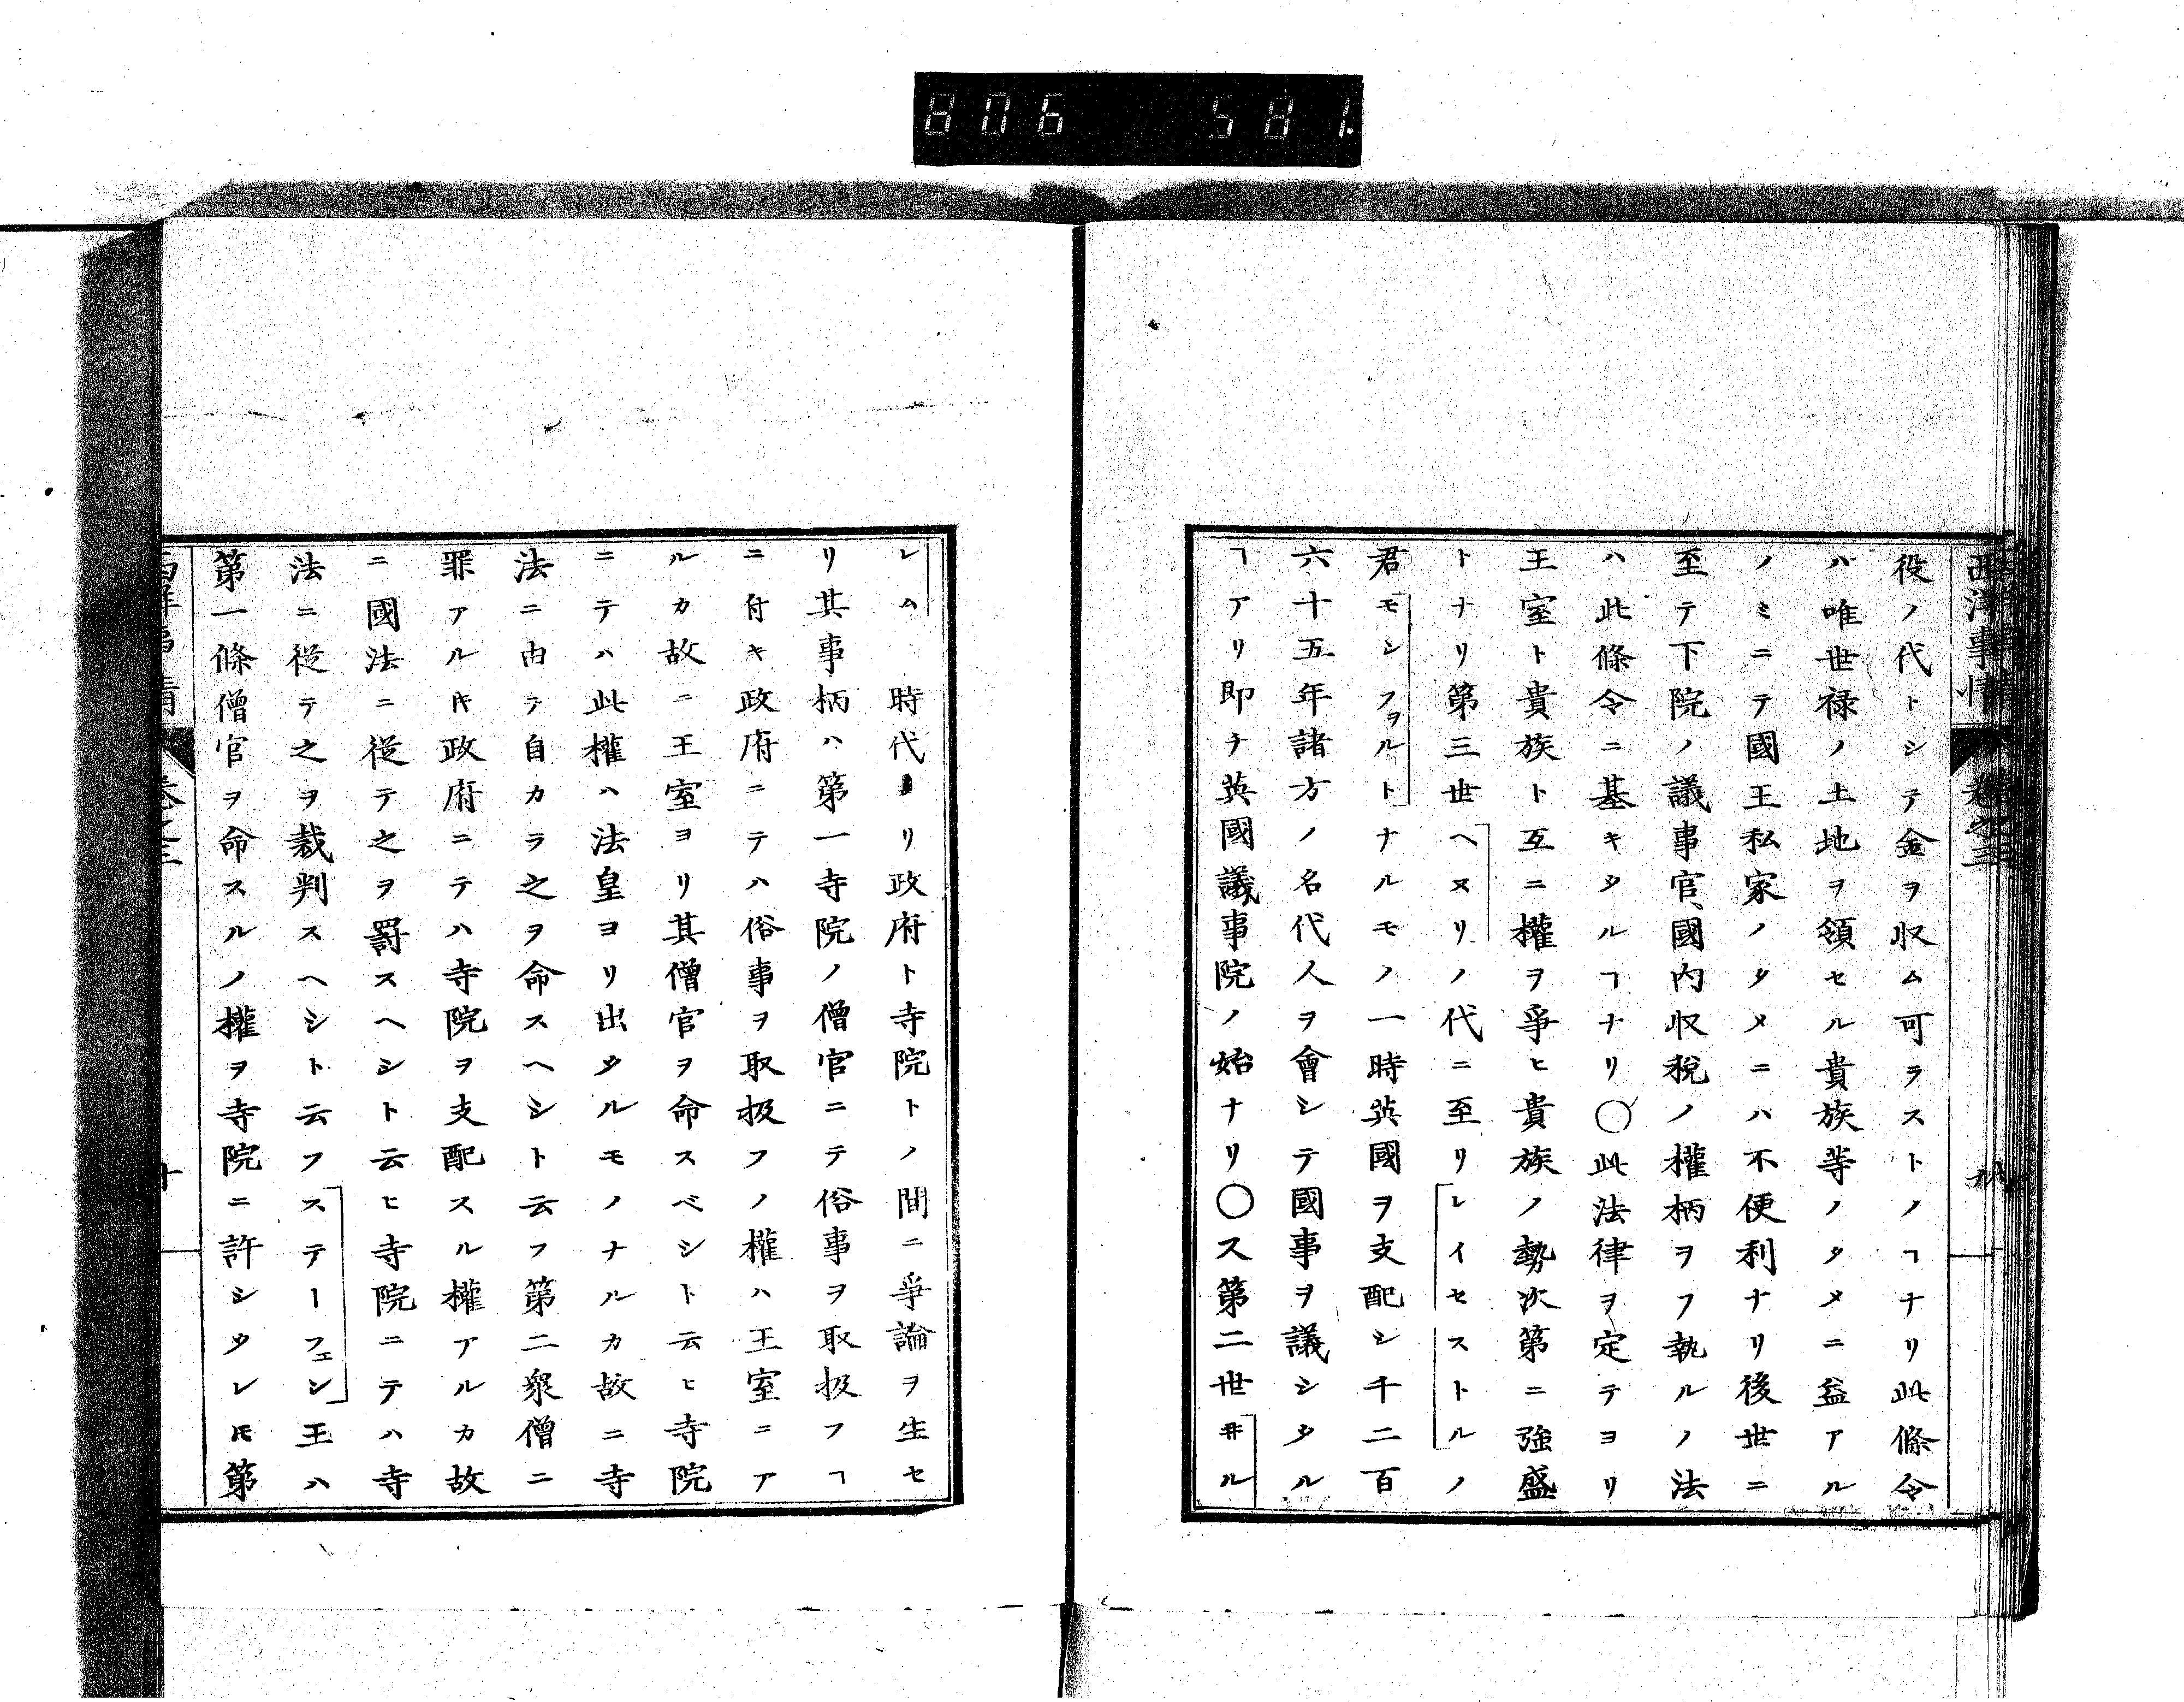 806 581.
西洋事情 卷之三 九
役ノ代トシテ金ヲ収ム可ラストノヿナリ此條令
ハ唯世禄ノ土地ヲ領セル貴族等ノタメニ益アル
ノミニテ國王私家ノタメニハ不便利ナリ後世ニ
至テ下院ノ議事官、國内収税ノ權柄ヲフ執ルノ法
ハ此條令ニ基キタルヿナリ〇此法律ヲ定テヨリ
王室ト貴族ト互ニ權ヲ爭ヒ貴族ノ勢次第ニ強盛
トナリ第三世ヘヌリノ代ニ至リレイセストルノ
君モシフヲルトナルモノ一時英國ヲ支配シ千二百
六十五年諸方ノ名代人ヲ會シテ國事ヲ議シタル
ヿアリ即チ英國議事院ノ始ナリ〇ス第二世ヰル
レム時代ヨリ政府ト寺院トノ間ニ爭論ヲ生セ
リ其事柄ハ第一寺院ノ僧官ニテ俗事ヲ取扱フヿ
ニ付キ政府ニテハ俗事ヲ取扱フノ權ハ王室ニア
ルカ故ニ王室ヨリ其僧官ヲ命スベシト云ヒ寺院
ニテハ此權ハ法皇ヨリ出タルモノナルカ故ニ寺
法ニ由テ自カラ之ヲ命スヘシト云フ第二衆僧ニ
罪アルトキ政府ニテハ寺院ヲ支配スル權アルカ故
ニ國法ニ從テ之ヲ罰スヘシト云ヒ寺院ニテハ寺
法ニ從テ之ヲ裁判スヘシト云フステーフェン王ハ
第一條僧官ヲ命スルノ權ヲ寺院ニ許シタレㇳモ第
西洋事情 卷之三 十